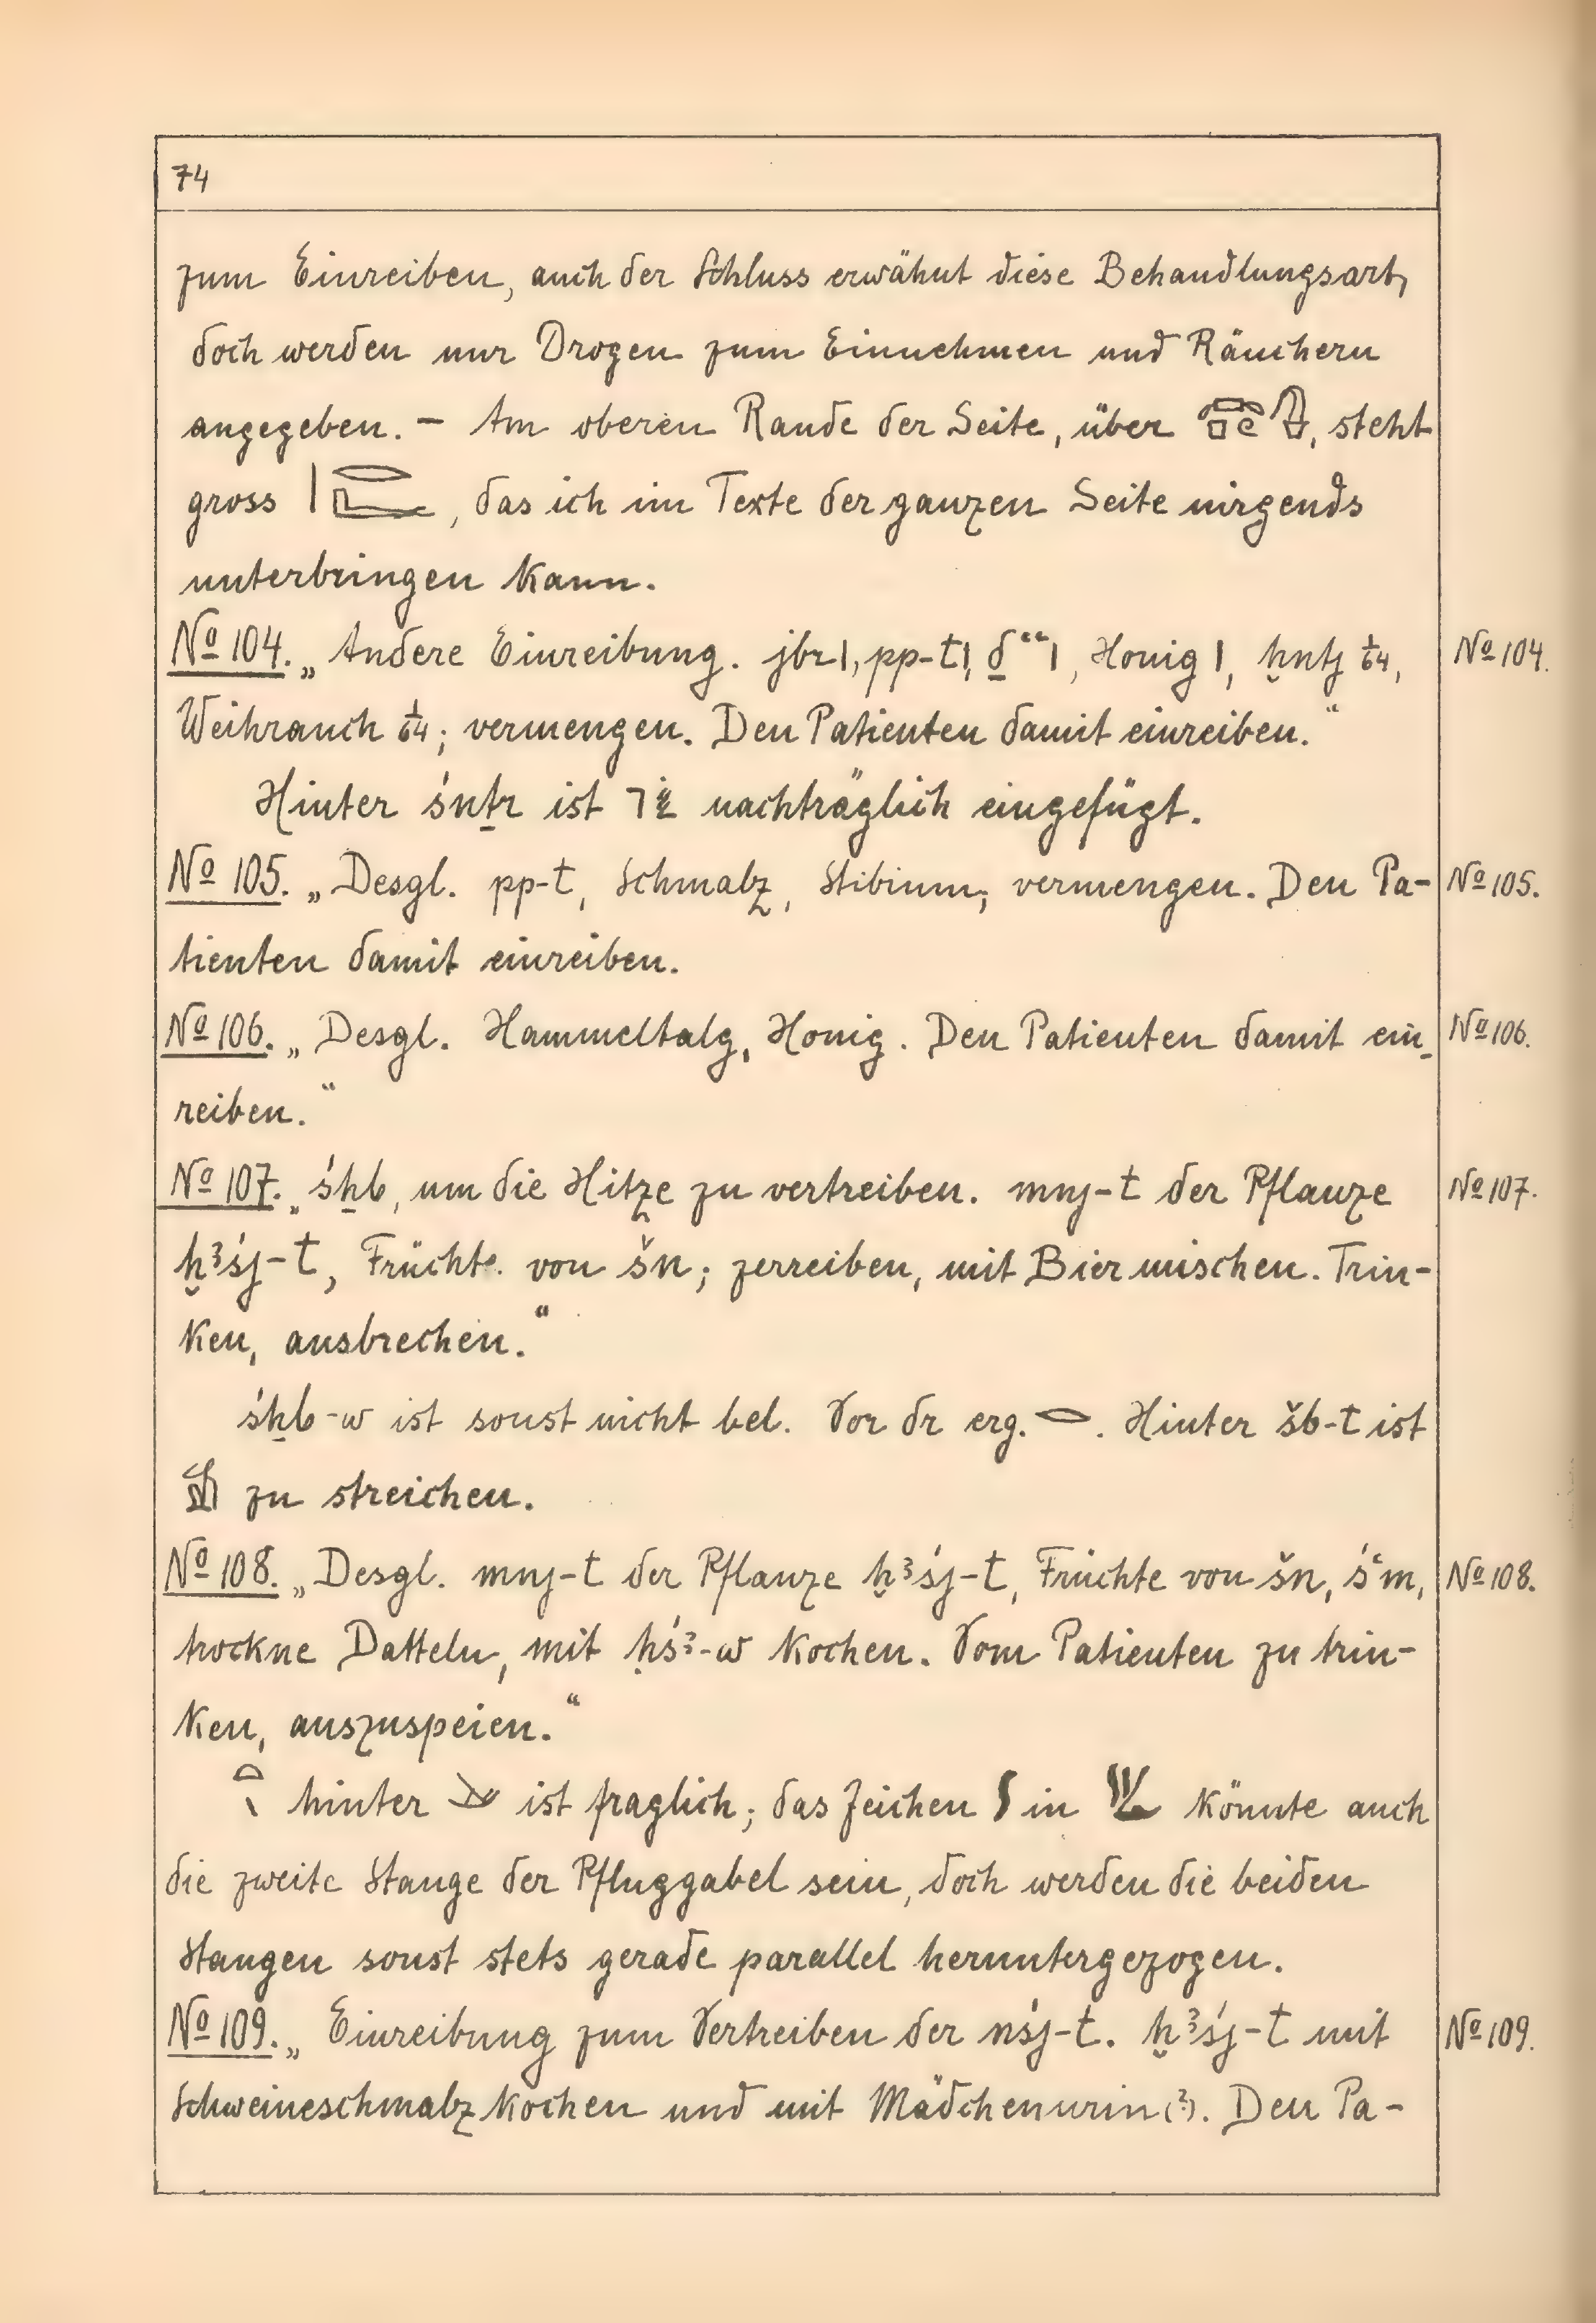 74
zum Einreiben, auch der Schluss erwähnt diese Behandlungsart,
doch werden nur Drogen zum Einnehmen und Räuchern
angegeben. – Am oberen Rande der Seite, über , steht
gross , das ich im Texte der ganzen Seite nirgends
unterbringen kann.
№ 104. „Andere Einreibung. jbr |, pp-t |, , Honig |, ḫntj 1/64, № 104.
Weihrauch 1/64; vermengen. Den Patienten damit einreiben.“
Hinter śnṯr ist nachträglich eingefügt.
№ 105. „Desgl. pp-t, Schmalz, Stibium; vermengen. Den Pa- № 105.
tienten damit einreiben.
№ 106. „Desgl. Hammeltalg, Honig. Den Patienten damit ein- № 106.
reiben.“
№ 107. „śẖb, um die Hitze zu vertreiben. mnj-t der Pflanze № 107.
ḫꜣśj-t, Früchte von šn; zerreiben, mit Bier mischen. Trin-
ken, ausbrechen.“
śẖb-w ist sonst nicht bel. Vor dr erg. 𓂋. Hinter šb-t ist
zu streichen.
№ 108. „Desgl. mnj-t der Pflanze ḫꜣśj-t, Früchte von šn, śꜥm, № 108.
trockne Datteln, mit ḥśꜣ-w kochen. Vom Patienten zu trin-
ken, auszuspeien.“
hinter ist fraglich; das Zeichen in könnte auch
die zweite Stange der Pfluggabel sein, doch werden die beiden
Stangen sonst stets gerade parallel heruntergezogen.
№ 109. „Einreibung zum Vertreiben der nśj-t. ḫꜣśj-t mit № 109.
Schweineschmalz kochen und mit Mädchenurin(?). Den Pa-